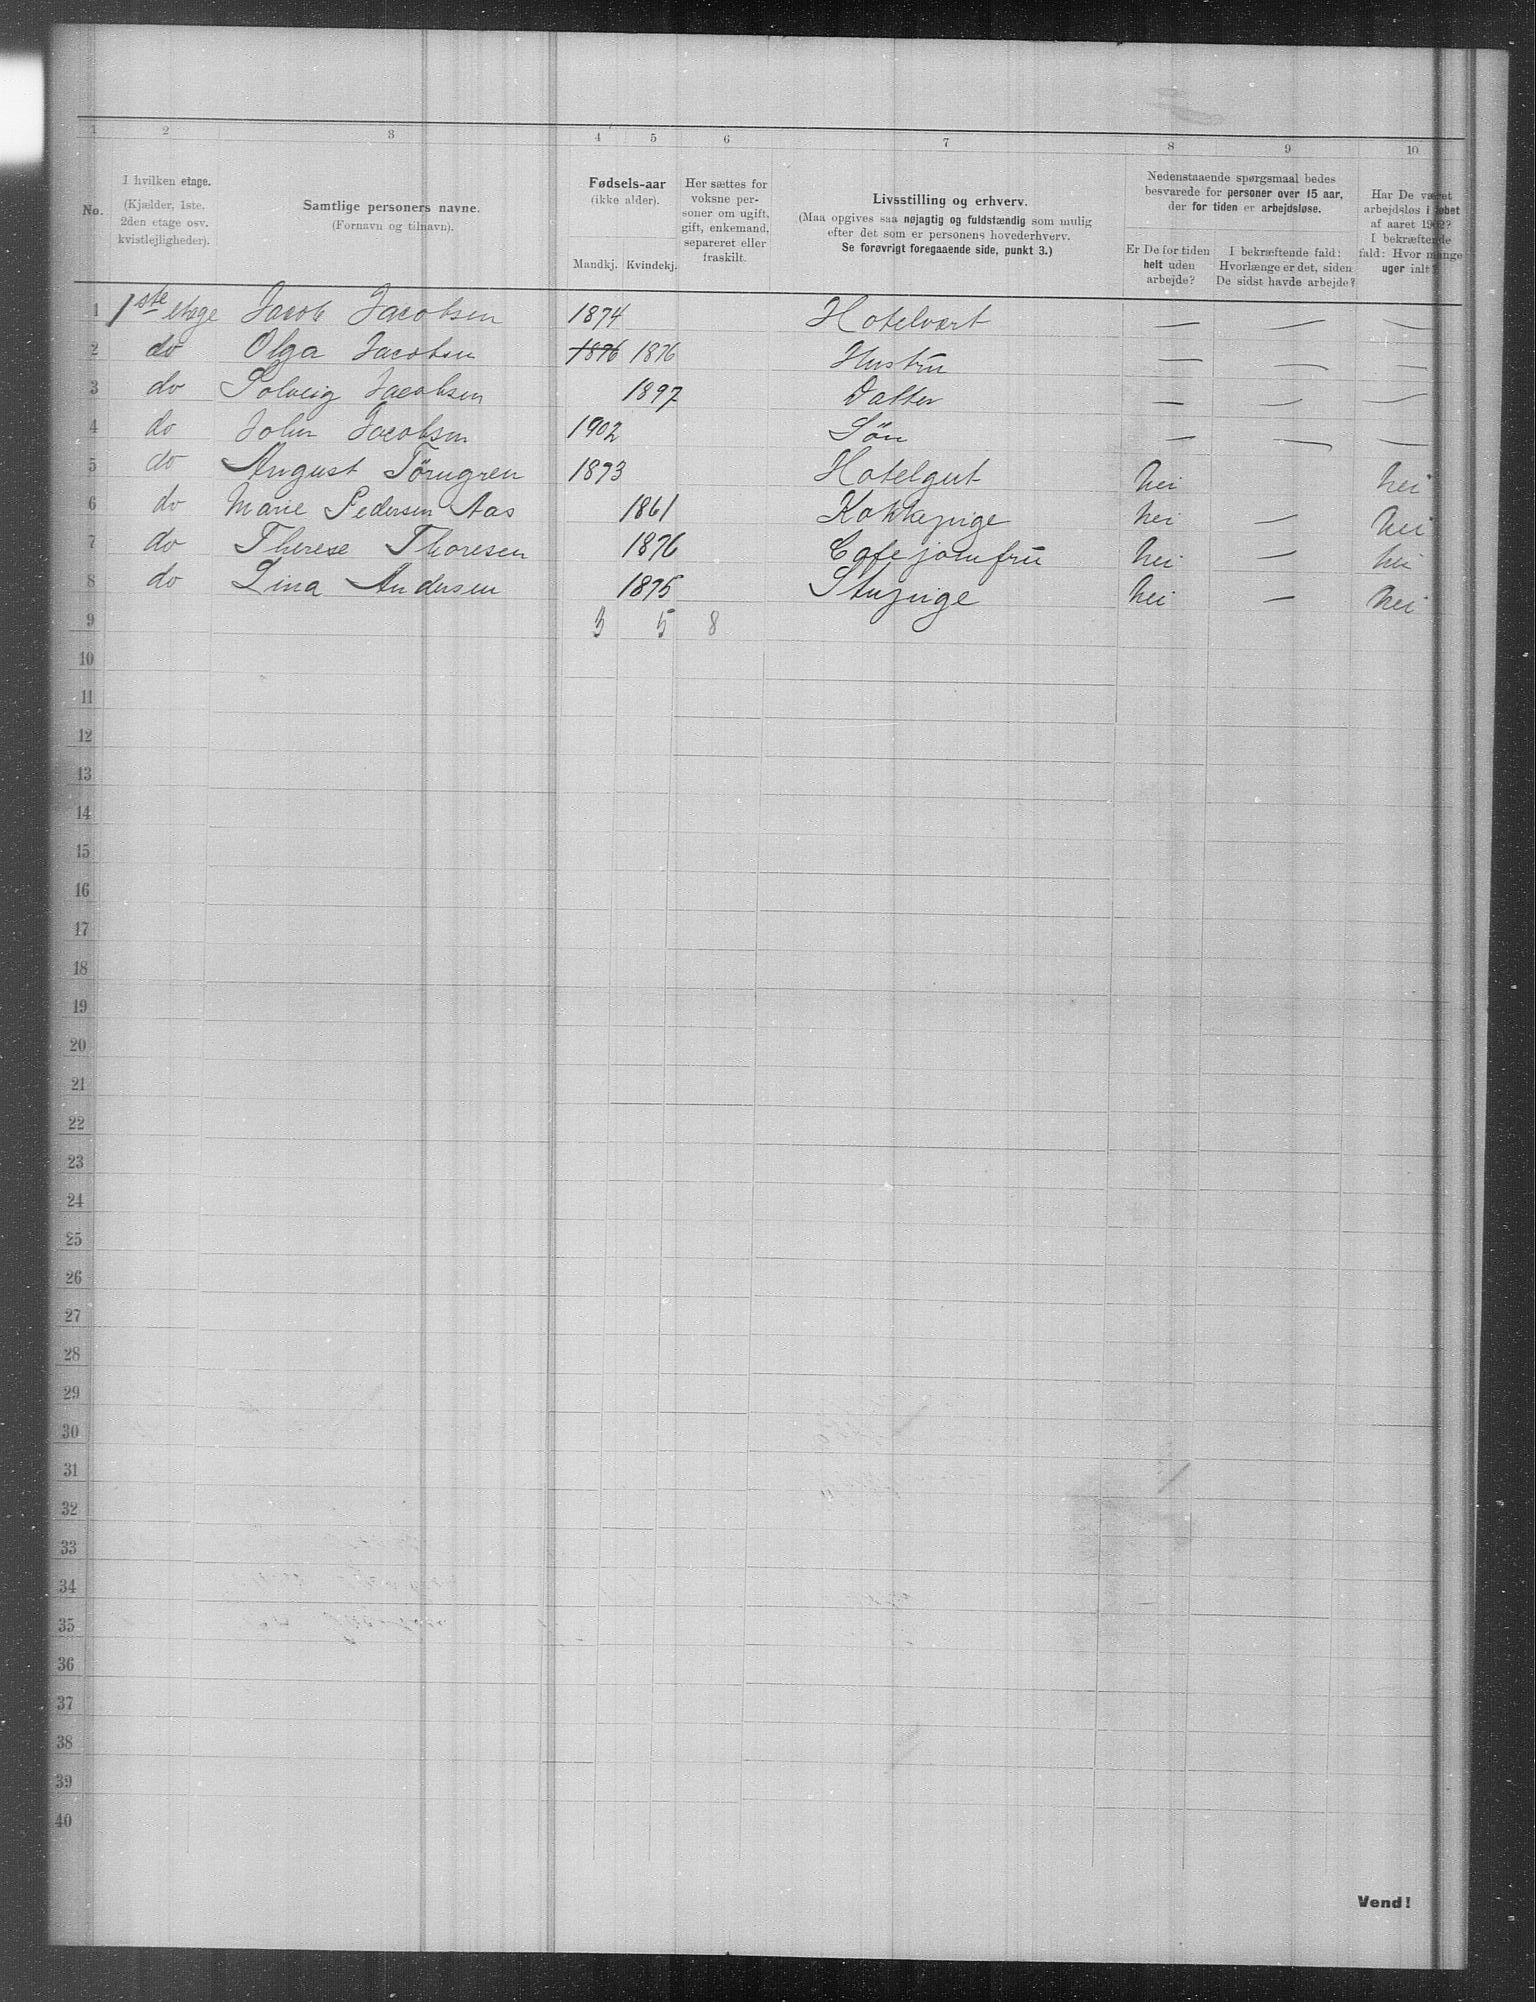 1 2 3 4 5 6 7 8 9 10
No.
I hvilken etage.
(Kjælder, 1ste.
2den etage osv.
kvistlejligheder).
Samtlige personers navne.
(Fornavn og tilnavn).
Fødsels-aar
(ikke alder).
Mandkj. Kvindekj.
Her sættes for
voksne per-
soner om ugift,
gift, enkemand,
separeret eller
fraskilt.
Livsstilling og erhverv.
(Maa opgives saa nøjagtig og fuldstændig som mulig
efter det som er personens hovederhverv.
Se forøvrigt foregaaende side, punkt 3.)
Nedenstaaende spørgsmaal bedes
besvarede for personer over 15 aar,
der for tiden er arbejdsløse.
Er De for tiden
helt uden
arbejde?
I bekræftende fald:
Hvorlænge er det, siden
De sidst havde arbejde?
Har De været
arbejdsløs i løbet
af aaret 1902?
I bekræftende
fald: Hvor mange
uger ialt?
1 1ste etage Jacob Jacobsen 1874 Hotelvært — — —
2 do Olga Jacobsen 1876 1876 Hustru — — —
3 do Solveig Jacobsen 1897 Datter — — —
4 do John Jacobsen 1902 Søn — — —
5 do August Törngren 1873 Hotelgut Nei Nei
6 do Marie Pedersen Aas 1861 Kokkepige Nei — Nei
7 do Therese Thoresen 1876 Cafejomfru Nei — Nei
8 do Lina Andersen 1875 Stupige Nei — Nei
9 3 5 8
10
11
12
13
14
15
16
17
18
19
20
21
22
23
24
25
26
27
28
29
30
31
32
33
34
35
36
37
38
39
40
Vend!